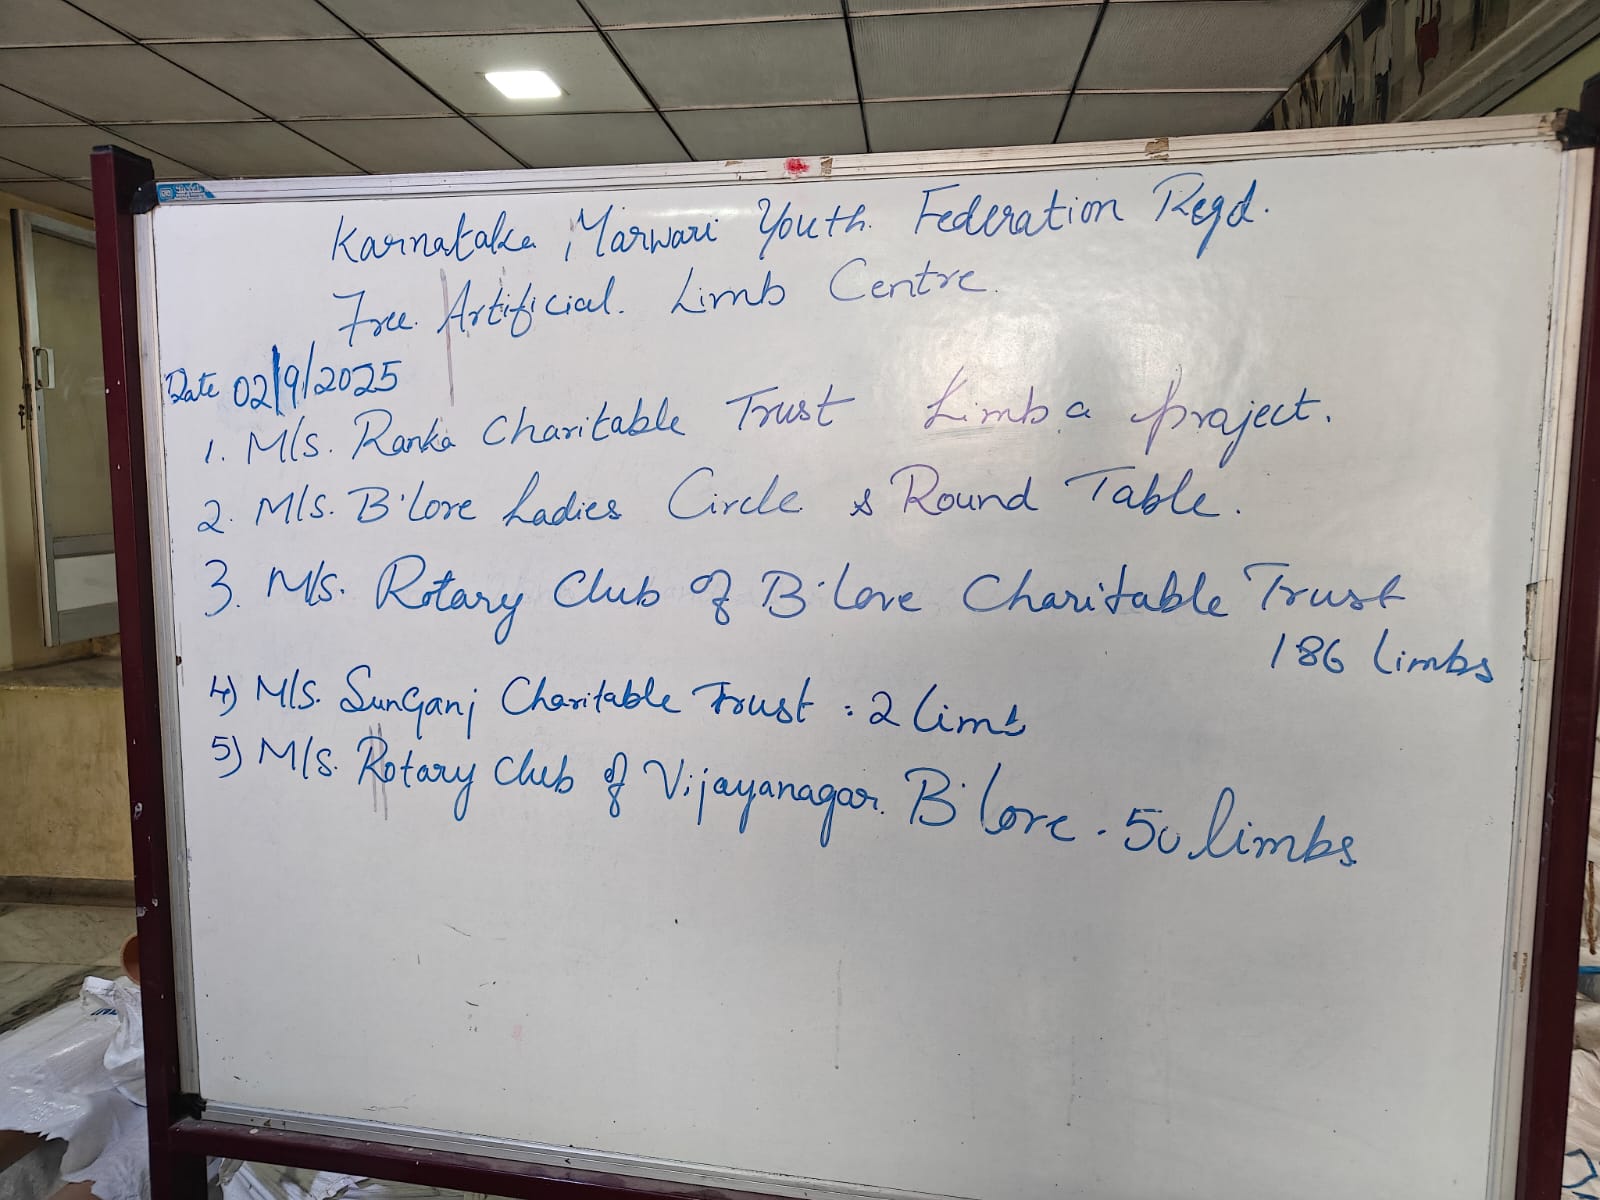 Karnataka Marwari Youth. Federation Regd.
Free. Artificial. Limb Centre.
Date 02/9/2025
1. M/s. Ranka Charitable Trust Limb a project.
2. M/s. B'lore Ladies Circle & Round Table.
3. M/s. Rotary Club of B'lore Charitable Trust
186 Limbs
4) M/s. SunGanj Charitable Trust : 2 limb
5) M/s. Rotary Club of Vijayanagar. B'lore. 50 limbs